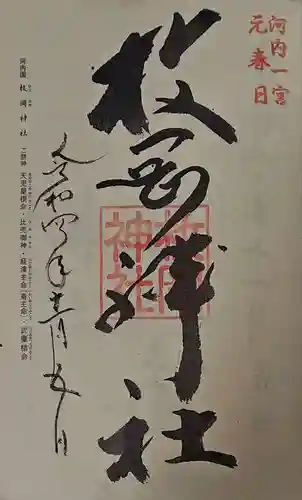 河内一宮
元春日
枚岡神社
枚岡神社
令和四年十二月五日
河内國 枚岡神社 ご祭神 天児屋根命・比売御神・経津主命(斎主命)・武甕槌命